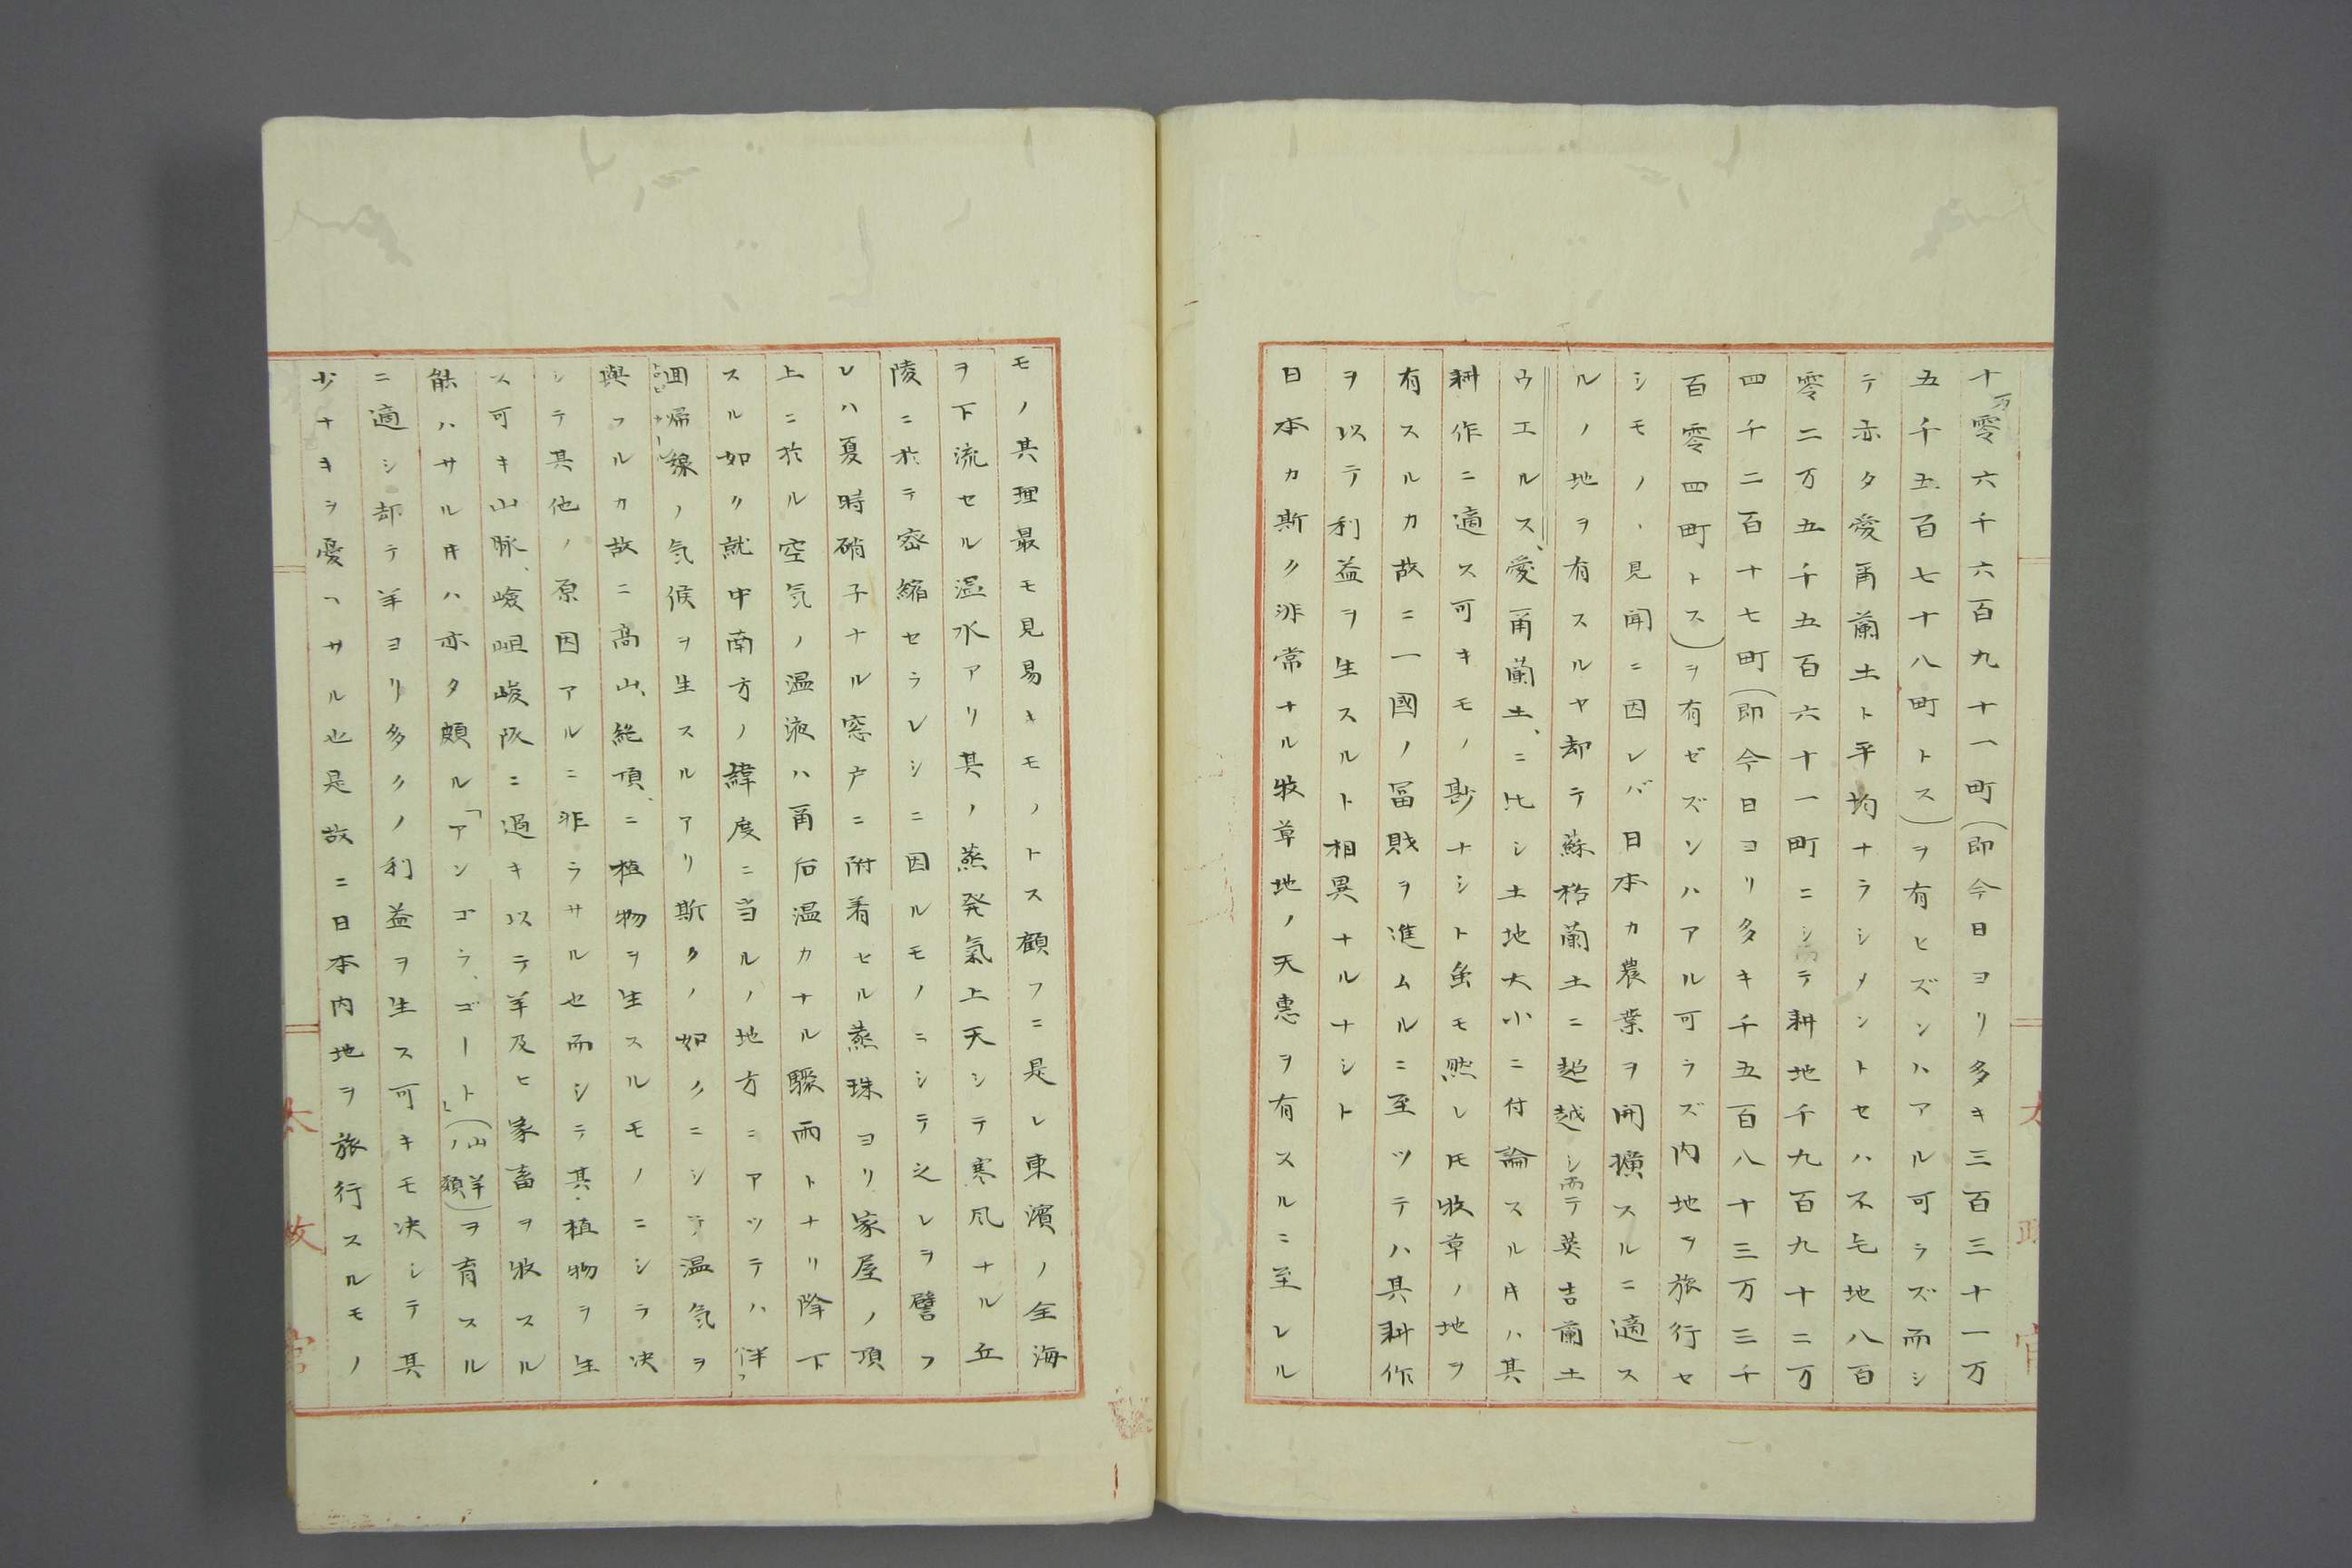 十万零六千六百九十一町（即今日ヨリ多キ三百三十一万
五千五百七十八町トス）ヲ有ヒズンハアル可ラズ而シ
テ亦タ愛甭蘭土ト平均ナラシメントセハ不毛地八百
零二万五千五百六十一町ニシテ耕地千九百九十二万
四千二百十七町（即今日ヨリ多キ千五百八十三万三千
百零四町トス）ヲ有ゼズンハアル可ラズ内地ヲ旅行セ
シモノヽ見聞ニ因レバ日本カ農業ヲ開擴スルニ適ス
ルノ地ヲ有スルヤ却テ蘇格蘭土ニ超越シ而テ英吉蘭土
ウエルス、愛甭蘭土、ニ比シ土地大小ニ付論スルキハ其
耕作ニ適ス可キモノ尠ナシト虽モ然レ𪜈牧草ノ地ヲ
有スルカ故ニ一國ノ冨賎ヲ進ムルニ至ツテハ其耕作
ヲ以テ利益ヲ生スルト相異ナルナシト
日本カ斯ク非常ナル牧草地ノ天惠ヲ有スルニ至レル
モノ其理最モ見易キモノトス顧フニ是レ東濱ノ全海
ヲ下流セル温水アリ其ノ蒸発氣上天シテ寒风ナル丘
陵ニ於テ密縮セラレシニ因ルモノニシテ之レヲ譬フ
レハ夏時硝子ナル窓戸ニ附着セル蒸珠ヨリ家屋ノ頂
上ニ於ル空気ノ温液ハ甭后温カナル驟雨トナリ降下
スル如ク就中南方ノ緯度ニ当ルノ地方ニアツテハ伴フ
囬帰線ノ気候ヲ生スルアリ斯クノ如クニシテ温気ヲ
與フルカ故ニ高山、絶頂、ニ植物ヲ生スルモノニシラ决
シテ其他ノ原因アルニ非ラサル也而シテ其植物ヲ生
ス可キ山脉、嶮岨峻阪ニ過キ以テ羊及ヒ家畜ヲ牧スル
能ハサルキハ亦タ頗ル「アンゴラ、ゴート」（山羊ノ類）ヲ育スル
ニ適シ却テ羊ヨリ多クノ利益ヲ生ス可キモ决シテ其
少ナキヲ憂ヘサル也是故ニ日本内地ヲ旅行スルモノ
太政官
太政官